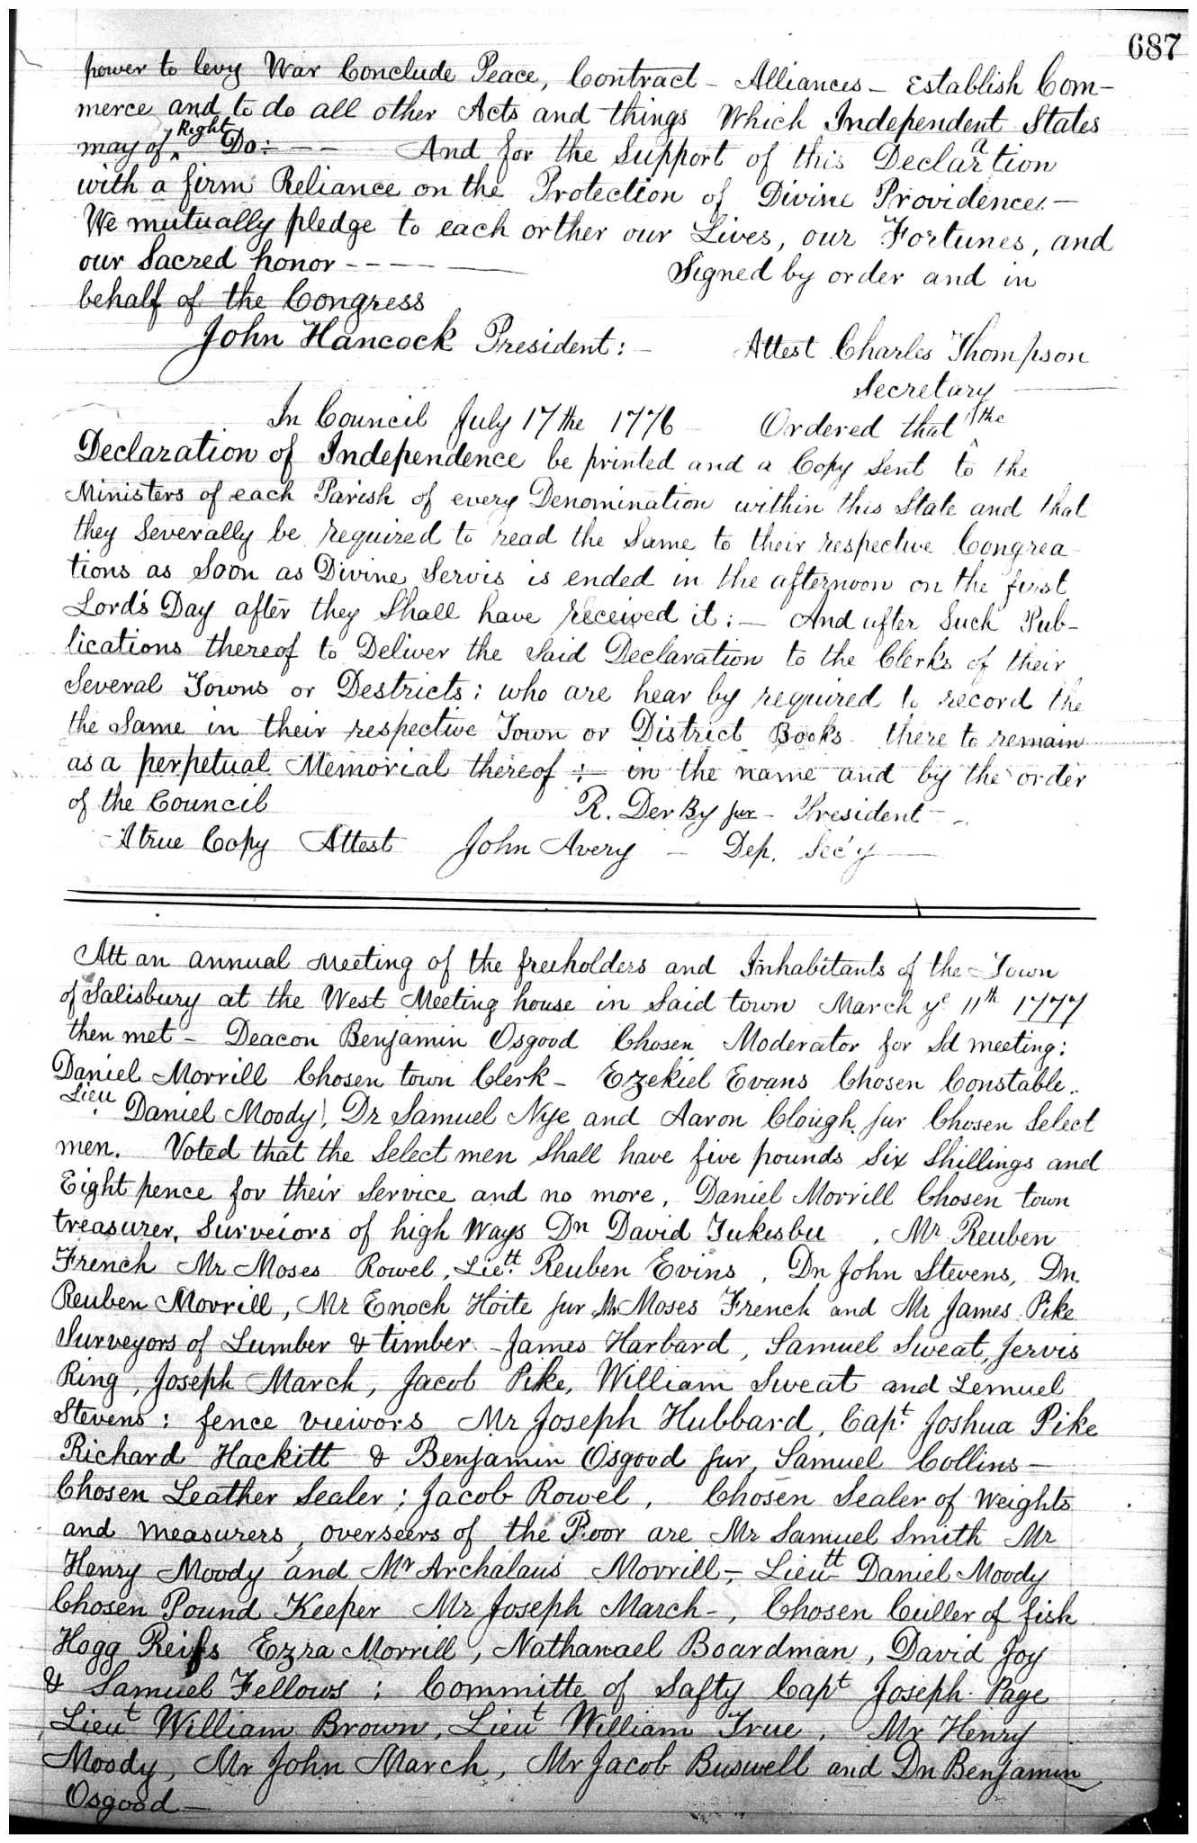 687
power to levy War Conclude Peace, Contract - Alliances - Establish Com-
merce and to do all other Acts and things Which Independent States
may of Right Do: - - - And for the Support of this Declaration
with a firm Reliance on the Protection of Divine Providence. -
We mutually pledge to each orther our Lives, our Fortunes, and
our Sacred honor - - - - Signed by order and in
behalf of the Congress
John Hancock President: - Attest Charles Thompson
Secretary
In Council July 17the 1776 - Ordered that the
Declaration of Independence be printed and a Copy Sent to the
Ministers of each Parish of every Denomination within this State and that
they Severally be required to read the Same to their respective Congrea-
tions as Soon as Divine Servis is ended in the afternoon on the first
Lord's Day after they Shall have received it: - And after Such Pub-
lications thereof to Deliver the Said Declaration to the Clerks of their
Several Towns or Destricts: who are hear by required to record the
the Same in their respective Town or District Books there to remain
as a perpetual Memorial thereof :- in the name and by the order
of the Council R. Der By jur - President -
- A true Copy Attest John Avery - Dep. Sec'y
Att an annual Meeting of the freeholders and Inhabitants of the Town
of Salisbury at the West Meeting house in Said town March ye 11th 1777
then met - Deacon Benjamin Osgood Chosen Moderator for Sd meeting:
Daniel Morrill Chosen town Clerk - Ezekiel Evans Chosen Constable.
Lieu Daniel Moody, Dr Samuel Nye and Aaron Clough jur Chosen Select
men. Voted that the Select men Shall have five pounds Six Shillings and
Eight pence for their Service and no more. Daniel Morrill Chosen town
treasurer. Surveiors of high Ways Dn David Tukesbu . Mr Reuben
French Mr Moses Rowel, Liett. Reuben Evins, Dn John Stevens, Dn.
Reuben Morrill, Mr Enoch Hoite jur Mr Moses French and Mr James Pike
Surveyors of Lumber & timber - James Harbard, Samuel Sweat, Jervis
Ring, Joseph March, Jacob Pike, William Sweat and Lemuel
Stevens: fence vieivors Mr Joseph Hubbard, Capt Joshua Pike
Richard Hackitt & Benjamin Osgood jur, Samuel Collins -
Chosen Leather Sealer; Jacob Rowel, Chosen Sealer of Weights
and measurers, overseers of the Poor are Mr Samuel Smith Mr
Henry Moody and Mr Archalaus Morrill -, Lieutt Daniel Moody
Chosen Pound Keeper Mr Joseph March -, Chosen Culler of fish
Hogg Reifs Ezra Morrill, Nathanael Boardman, David Joy
& Samuel Fellows : Committe of Safty Capt Joseph Page
Lieut William Brown, Lieut William True, Mr Henry
Moody, Mr John March, Mr Jacob Buswell and Dn Benjamin
Osgood -